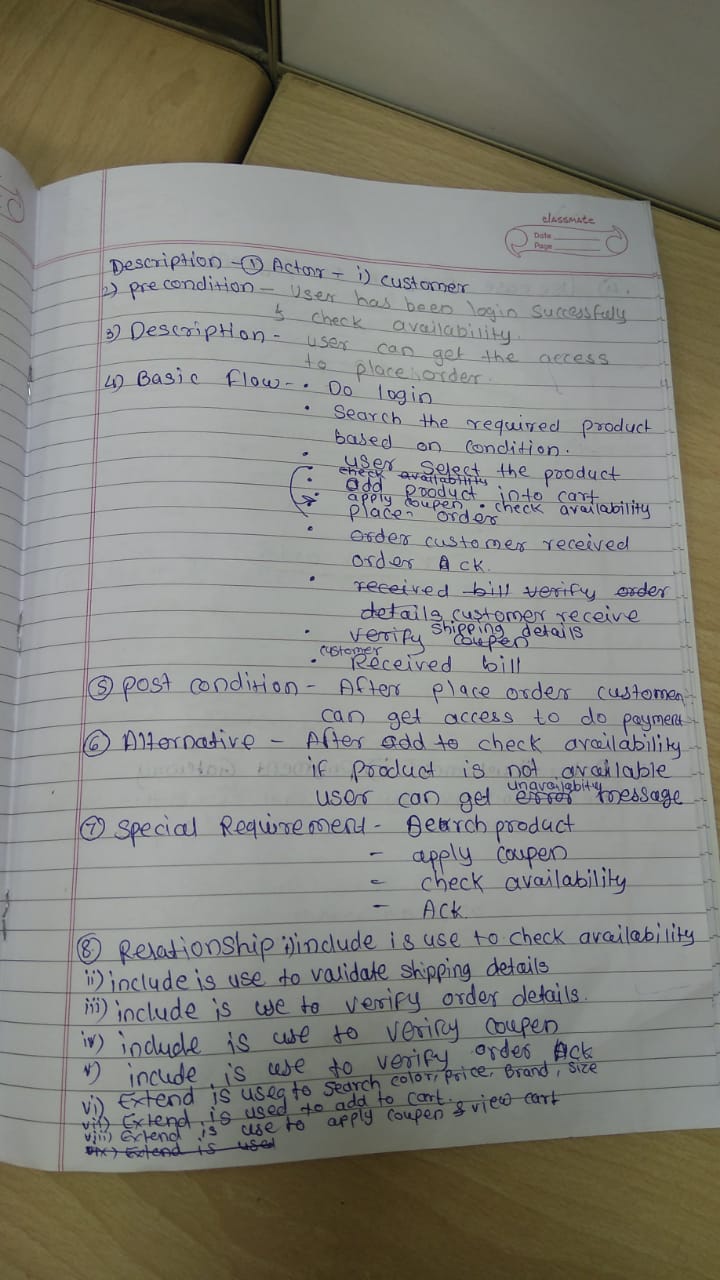 classmate
Date
Page
Description - ① Actorr - i) customer
2) pre condition - User has been login successfuly
& check availability.
3) Description - user can get the access
to place order.
4) Basic flow - • Do login
• Search the required product
based on condition.
• user select the product
• check availability
• add product into cart
• apply coupen • check availability
place order
• order customer received
order Ack.
• received bill verify order
details customer receive
shipping details
• verify coupen
customer
• Received bill
⑤ post condition - After place order customer
can get access to do payment
⑥ Alternative - After add to check availability
if product is not available
unavailabity
user can get error message
⑦ Special Requirement - Search product
- apply coupen
- check availability
- Ack.
⑧ Relationship i) include is use to check availability
ii) include is use to validate shipping details
iii) include is use to verify order details.
iv) include is use to verify coupen
v) incude is use to verify order Ack
vi) Extend is useq to search color, price, Brand, size
vii) Extend is used to add to cart.
viii) Extend is use to apply coupen & view cart
ix) Extend is used